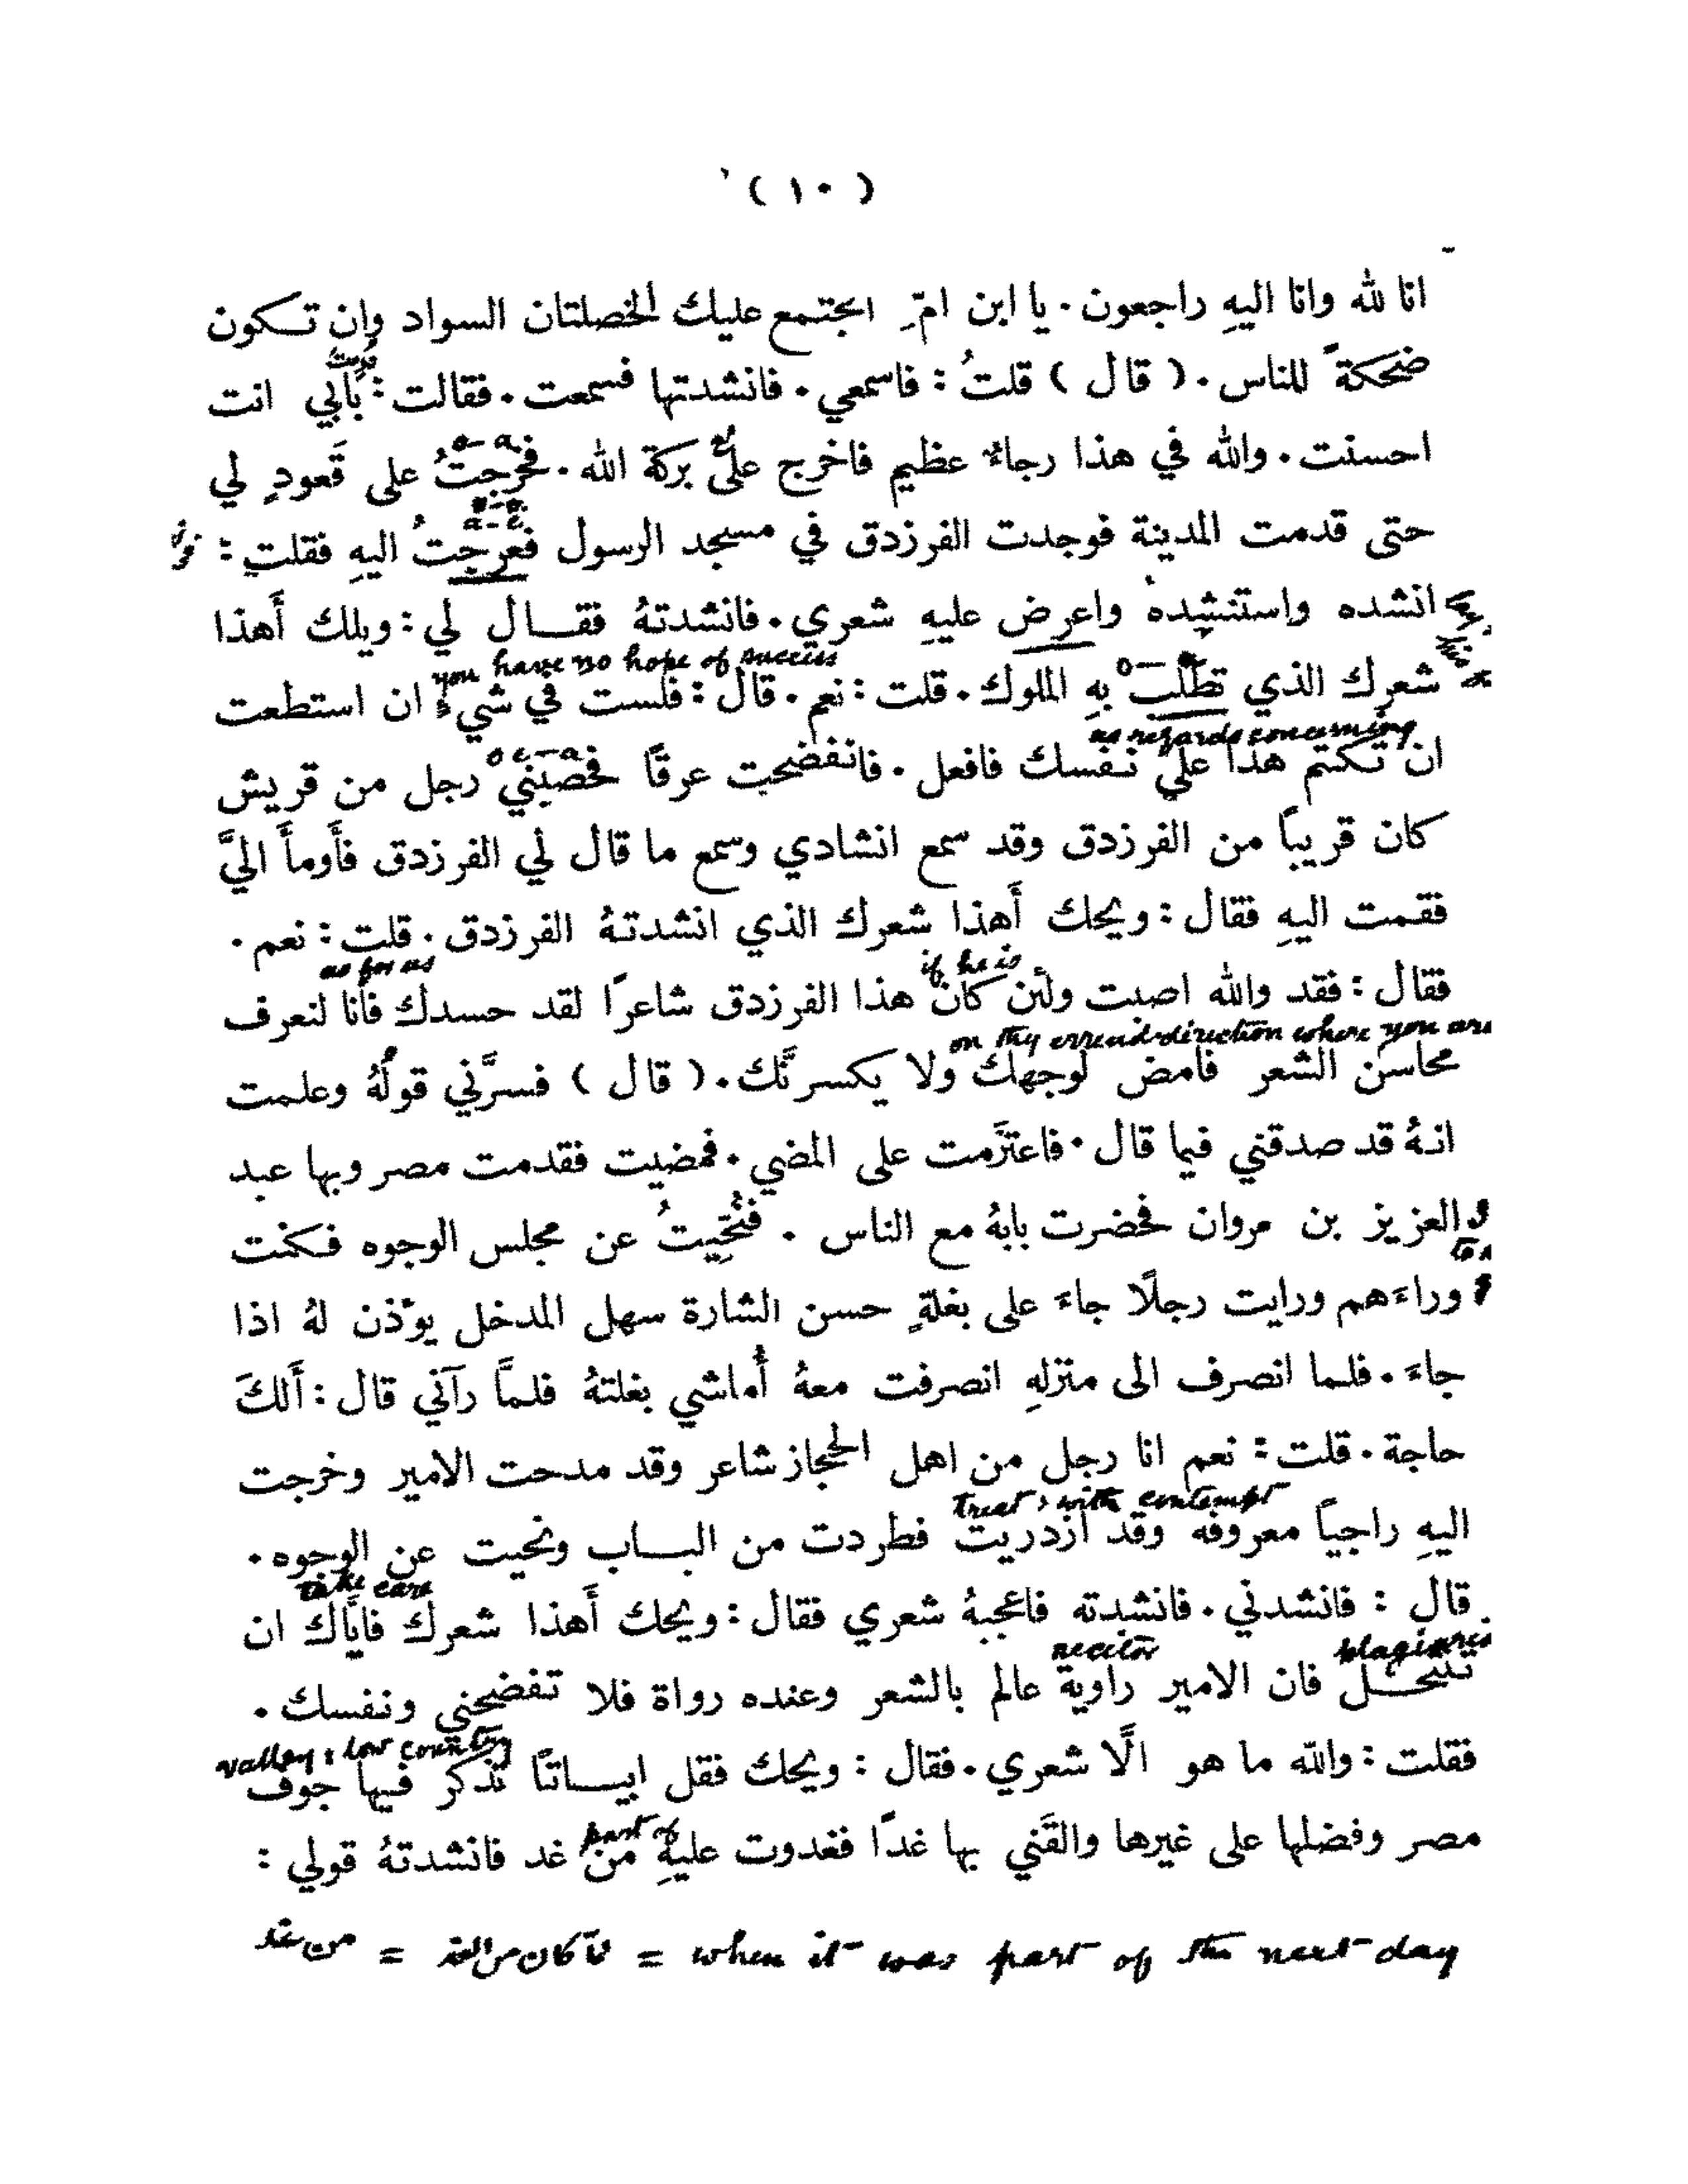 ( ١٠ )
انا لله وانا اليهِ راجعون . يا ابن امّ ِ اجتمع عليك الخصلتان السواد وان تكون
ضحكةً للناس . ( قال ) قلتُ : فاسمعي . فانشدتها فسمعت . فقالت : بأبي انت
احسنت . والله في هذا رجاءٌ عظيم فاخرج على بركة الله . فخرجتُ على قَعودٍ لي
o-a
حتى قدمت المدينة فوجدت الفرزدق في مسجد الرسول فعرجتُ اليهِ فقلت :
a-i
انشده واستنشده واعرض عليهِ شعري . فانشدتهُ فقال لي : ويلك أَهذا
you have no hope of success
شعرك الذي تطلب بهِ الملوك . قلت : نعم . قال : فلست في شيء ان استطعت
as regards concerning
ان تكتم هذا على نفسك فافعل . فانفضحت عرقًا فحصبني رجل من قريش
كان قريبًا من الفرزدق وقد سمع انشادي وسمع ما قال لي الفرزدق فأَومأَ اليَّ
فقمت اليهِ فقال : ويحك أَهذا شعرك الذي انشدتهُ الفرزدق . قلت : نعم .
if he is as for us
فقال : فقد والله اصبت ولئن كان هذا الفرزدق شاعرًا لقد حسدك فانا لنعرف
on thy errend-direction where you are
محاسن الشعر فامض لوجهك ولا يكسرنَّك . ( قال ) فسرَّني قولهُ وعلمت
انهُ قد صدقني فيما قال . فاعتزمت على المضي . فمضيت فقدمت مصر وبها عبد
العزيز بن مروان فحضرت بابهُ مع الناس . فنُحّيتُ عن مجلس الوجوه فكنت
وراءهم ورايت رجلًا جاءَ على بغلةٍ حسن الشارة سهل المدخل يوٴذن لهُ اذا
جاءَ . فلما انصرف الى منزلهِ انصرفت معهُ أُماشي بغلتهُ فلمَّا رآني قال : أَلكَ
حاجة . قلت : نعم انا رجل من اهل الحجاز شاعر وقد مدحت الامير وخرجت
treat : with contempt
اليهِ راجيًا معروفه وقد ازدريت فطردت من الباب ونحيت عن الوجوه .
take care
قال : فانشدني . فانشدته فاعجبهُ شعري فقال : ويحك أَهذا شعرك فايَّاك ان
reciter
تنتحل فان الامير راوية عالم بالشعر وعنده رواة فلا تفضحني ونفسك .
valley : low country
فقلت : والله ما هو الَّا شعري . فقال : ويحك فقل ابياتًا تذكر فيها جوف
part of
مصر وفضلها على غيرها والقَني بها غدًا فغدوت عليهِ من غد فانشدتهُ قولي :
من غد = لما كان من الغد = when it was part of the next day